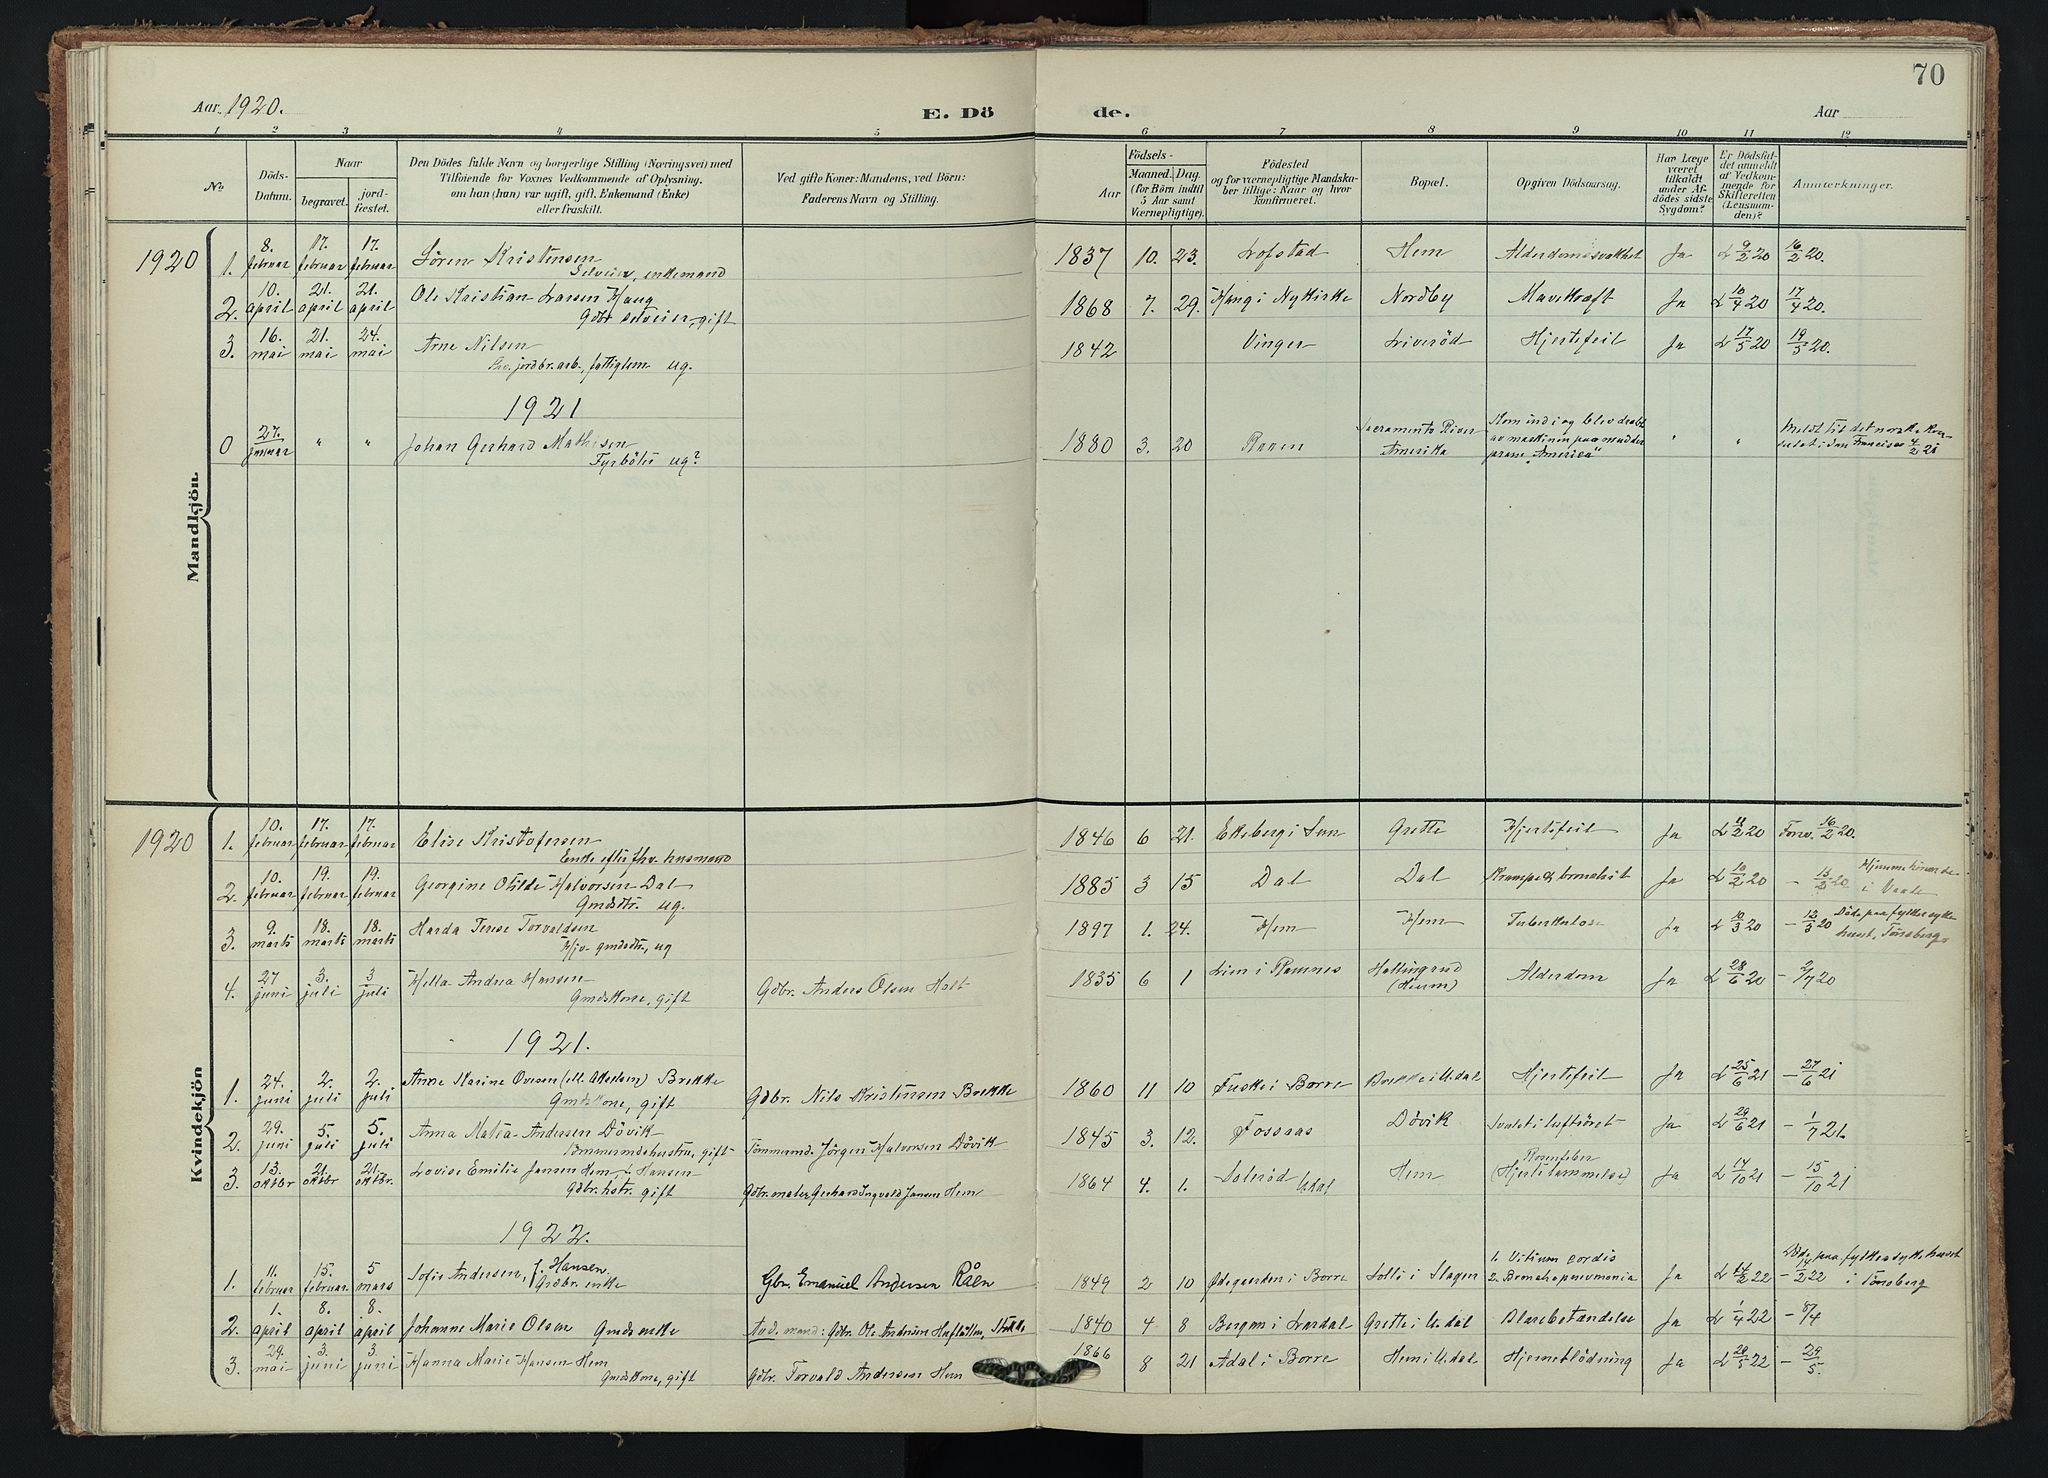 70
Aar 1920.
E. Dö de.
Aar
1 2 3 4 5 6 7 8 9 10 11 12
No
Döds-Datum.
Naar
begravet.
jord-fæstet.
Den Dödes fulde Navn og borgerlige Stilling (Næringsvei) med
Tilföiende for Voxnes Vedkommende af Oplysning.
om han (hun) var ugift, gift. Enkemand (Enke)
eller fraskilt.
Ved gifte Koner: Mandens, ved Börn:
Faderens Navn og Stilling.
Födsels-
Aar
Maaned. Dag.
(for Börn indtil
5 Aar samt
Værnepligtige).
Födested
og for værnepligtige Mandska-
ber tillige: Naar og hvor
konfirmeret.
Bopæl.
Opgiven Dödsaarsag.
Har Læge
været
tilkaldt
under Af-
dödes sidste
Sygdom?
Er Dödsfal-
det anmeldt
af Vedkom-
mende for
Skifteretten
(Lensman-
den)?
Anmærkninger.
Mandkjön.
1920 1. 8. februar 17. februar 17. februar Sören Kristensen 1837 10. 23. Lofstad Hem Alderdomssvakhet Ja L 9/2 20 16/2 20.
Selveier, enkemand
2. 10. april 21. april 21. april Ole Kristian Larsen Haug 1868 7. 29. Haug i Nykirke Nordby Mavekræft Ja L 10/4 20 17/4 20.
Gdbr selveier, gift
3. 16. mai 21. mai 24. mai Arne Nilsen 1842 Vinger Liveröd Hjertefeil Ja L 17/5 20 19/5 20.
jordbr. arb., fattiglem ug.
1921
0 27. januar " " Johan Gerhard Mathisen 1880 3. 20 Raaen Sacramento River Amerika Kom ind i og blev dræbt av maskinen paa mudderpram "America" " " Meldt til det norske konsulat i San Francisco 4/2 21
Fyrböter ug?
Kvindekjön
1920 1. 10. februar 17. februar 17. februar Elise Kristofersen 1846 6 21. Ekeberg i Sem Grette Hjertefeil Ja L 11/2 20 Forv. 16/2 20.
Enke efter fhv. husmand
2. 10. februar 19. februar 19. februar Georgine Otilde Halvorsen Dal 1885 3 15 Dal Dal Krampe & bronchit Ja L 10/2 20 – 13/2 20 Hjemmehörende i Vaale
Gmdsdtr. ug.
3. 9. marts 18. marts 18. marts Harda Terese Torvaldsen 1897 1. 24. Hem Hem Tuberkulose Ja L 10/3 20 – 12/3 20 Döde paa fylkessykehuset, Tönsberg
Hjv. gmdsdtr., ug
4. 27 juni 3. juli 3 juli Hella Andrea Hansen Gdbr. Anders Olsen Holt 1835 6 1 Lien i Ramnes Hallingrud (Hiem) Alderdom Ja L 28/6 20 – 2/7 20
Gmdskone, gift
1921.
1. 24. juni 2. juli 2. juli Anne Karine Ovesen Brekke Gdbr. Nils Kristensen Brekke 1860 11 10 Fuske i Borre Brekke i U.dal Hjertefeil Ja L 25/6 21 – 27/6 21
Gmdskone, gift
2. 29. juni 5. juli 5. juli Anna Matea Andersen Dövik Tömmermd. Jörgen Halvorsen Dövik 1845 3. 12. Fossaas Dövik Svulst i luftröret Ja L 29/6 21 – 1/7 21.
Tömmermdshustru, gift
3. 13. oktbr 21. oktbr 21. oktbr. Lovise Emilie Jansen Hem f. Hansen Gdbr. maler Gerhard Ingvald Jansen Hem 1864 4. 1. Soleröd U.dal Hem Rosenfeber (Hjertelammelse) Ja L 14/10 21 – 15/10 21
Gdbr. hstr. gift
1922.
1. 11. februar 15. februar 5 mars Sofie Andersen, f. Hansen Gbr. Emanuel Andersen Råen 1849 2 10 Ödegaarden i Borre Solli i Slagen 1. Vitium cordis 2. Bronchopneumonia Ja L 14/2 22 – 14/2 22 Döde paa fylkessykehuset i Tönsberg
Gårdbr. enke
2. 1. april 8. april 8. april Johanne Marie Olsen Gmdsenke Avd. mand: Gdbr. Ole Andersen 1840 4 8 Bergan i Lardal Grette i U.dal Blærebetændelse Ja L 1/4 22 – 8/4
3. 29. mai 3. juni 3. juni Hanna Marie Hansen Hem Gdbr. Torvald Andersen Hem 1866 8 21 Adal i Borre Hem i U.dal Hjerneblödning Ja L 29/5 22 – 29/5.
Gmdskone, gift